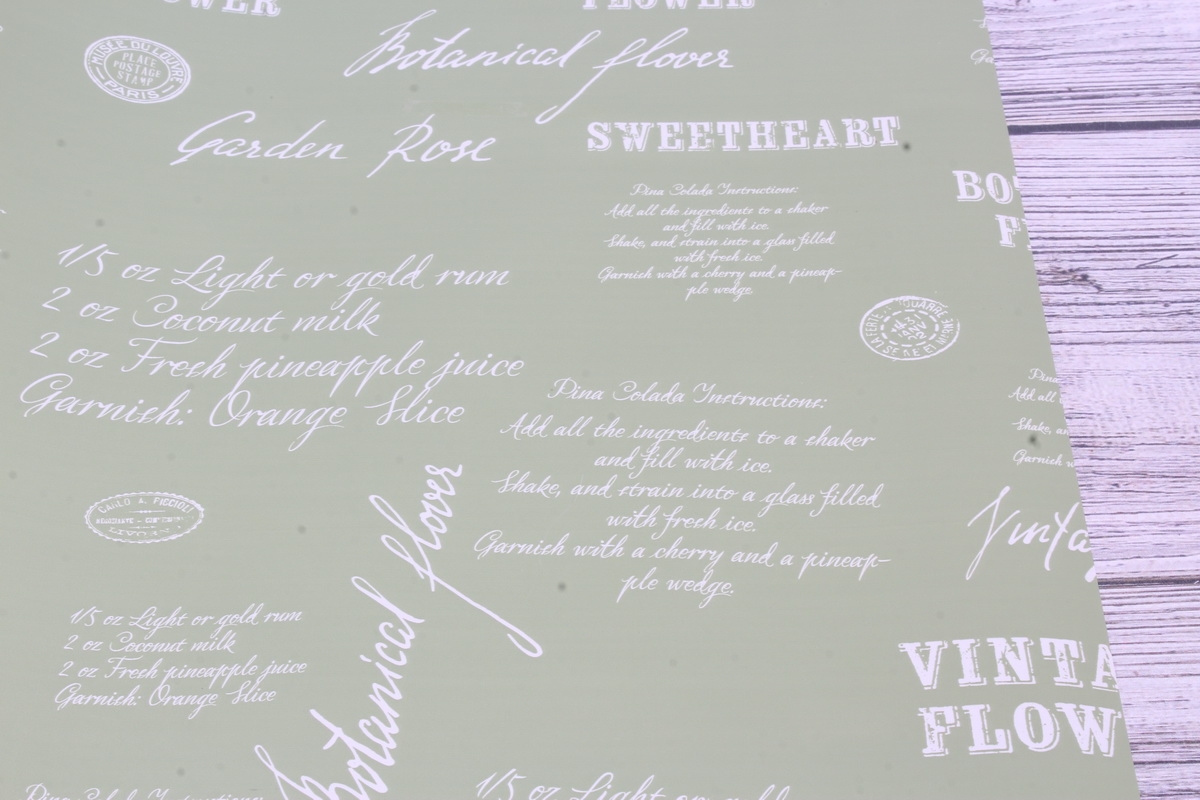 FLOWER
Botanical flover
MUSÉE DU LOUVRE
PLACE
POSTAGE
STAMP
PARIS
Garden Rose
SWEETHEART
Pina Colada Instructions:
Add all the ingredients to a shaker
and fill with ice.
Shake, and strain into a glass filled
with fresh ice.
Garnish with a cherry and a pineap-
ple wedge.
1/5 oz Light or gold rum
2 oz Coconut milk
2 oz Fresh pineapple juice
Garnish: Orange Slice
Pina Colada Instructions:
Add all the ingredients to a shaker
and fill with ice.
Shake, and strain into a glass filled
with fresh ice.
Garnish with a cherry and a pineap-
ple wedge.
Pina
Add all
Shake, an
Garnish w
CARLO A. PICCIOLI
LIVORN
Botanical flover
Vinta
1/5 oz Light or gold rum
2 oz Coconut milk
2 oz Fresh pineapple juice
Garnish: Orange Slice
VINTA
FLOW
Pina Colada Instructions
1/5 oz Light or gold rum